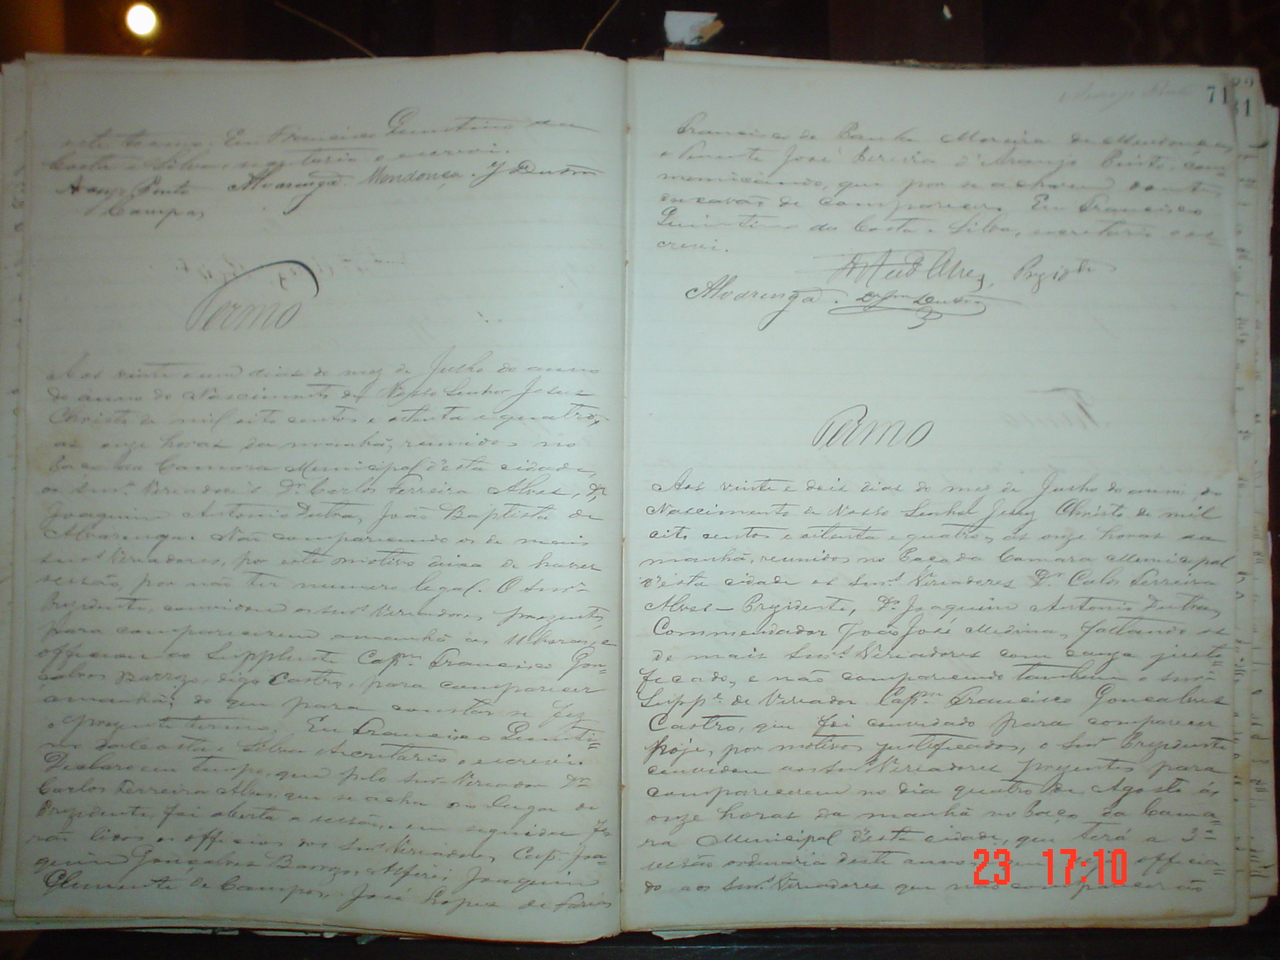 este termo. Eu Francisco Quintino da
Costa e Silva, secretario o escrevi.
Araujo Pinto Alvarenga. Mendonça. J Dutra
Campos
Termo
Aos vinte e um dias do mez de Julho do anno
do anno do Nascimento de Nosso Senhor Jesus
Christo de mil oito centos e oitenta e quatro,
as onze horas da manhã, reunidos no
Paço da Camara Municipal d'esta cidade,
os Senr.s Vereadores Dr. Carlos Ferreira Alves, Dr
Joaquim Antonio Dutra, João Baptista de
Alvarenga. Não comparecendo os de mais
Senr.s Vereadores, por este motivo deixa de haver
sessão, por não ter numero legal. O Senr.
Prezidente, convidou os Senr.s Vereadores prezentes,
para comparecerem amanhã as 11 horas, e
officiou ao Supplente Cap.m Francisco Gon-
çalves Barrozo, digo Castro, para comparecer
amanhã; do que para constar se fez
o prezente termo. Eu Francisco Quinti-
no da Costa e Silva Secretario o escrevi.
Declaro em tempo que pelo Senr. Vereador Dr.
Carlos Ferreira Alves, que se acha no lugar de
Prezidente, foi aberta a sessão, em seguida fo-
rão lidos os officios dos Senr.s Vereadores Cap.m Joa-
quim Gonçalves Barrozo, Alferes Joaquim
Clemente de Campos, José Lopes de Faria
71
81
Francisco de Paula Moreira de Mendonça,
e Tenente José Pereira d'Araujo Pinto, com-
municando, que por se acharem doentes,
deixavão de comparecer. Eu Francisco
Quintino da Costa e Silva, secretario o es-
crevi.
Alves, Prezide
Alvarenga. Dutra
Termo
Aos vinte e dois dias do mez de Julho do anno do
Nascimento de Nosso Senhor Jesus Christo de mil
oito centos e oitenta e quatro, as onze horas da
manhã, reunidos no Paço da Camara Municipal
d'esta cidade os Senr.s Vereadores Dr. Carlos Ferreira
Alves - Prezidente, Dr. Joaquim Antonio Dutra,
Commendador João José Medina, faltando os
de mais Senr.s Vereadores com cauza justi-
ficada, e não comparecendo tambem o Senr.
Supp.e de Vereador Cap.m Francisco Gonçalves
Castro, que foi convidado para comparecer
hoje, por motivos justificados, o Senr. Prezidente
convidou aos Senr.s Vereadores prezentes para
comparecerem no dia quatro de Agosto as
onze horas da manhã no Paço da Cama-
ra Municipal d'esta cidade, que será a 3.a
sessão ordinaria deste anno, officia-
do aos Senr.s Vereadores que não comparecerão
23 17:10